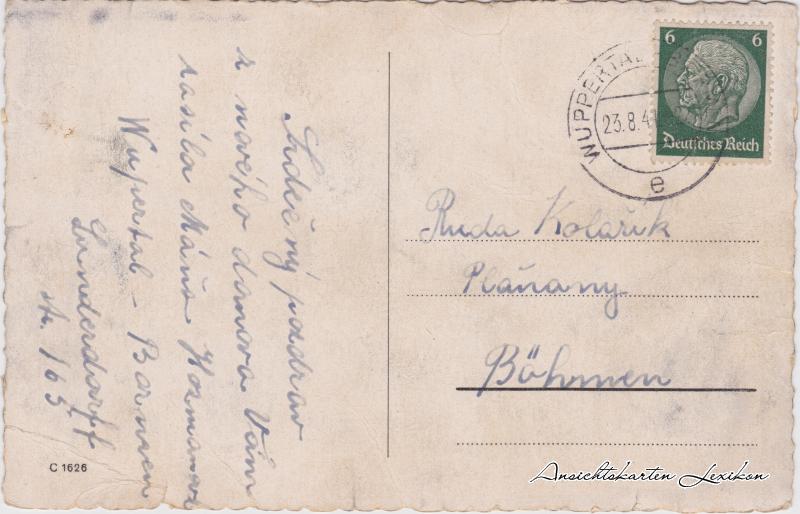 Srdečný pozdrav
z nového domova Vám
zasílá Máňa
Wupertal - Barmen
str. 165
C 1626
WUPPERTAL
23.8.4
e
6 6
Deutsches Reich
Ruda Kolařík
Plaňany
Böhmen
Ansichtskarten Lexikon